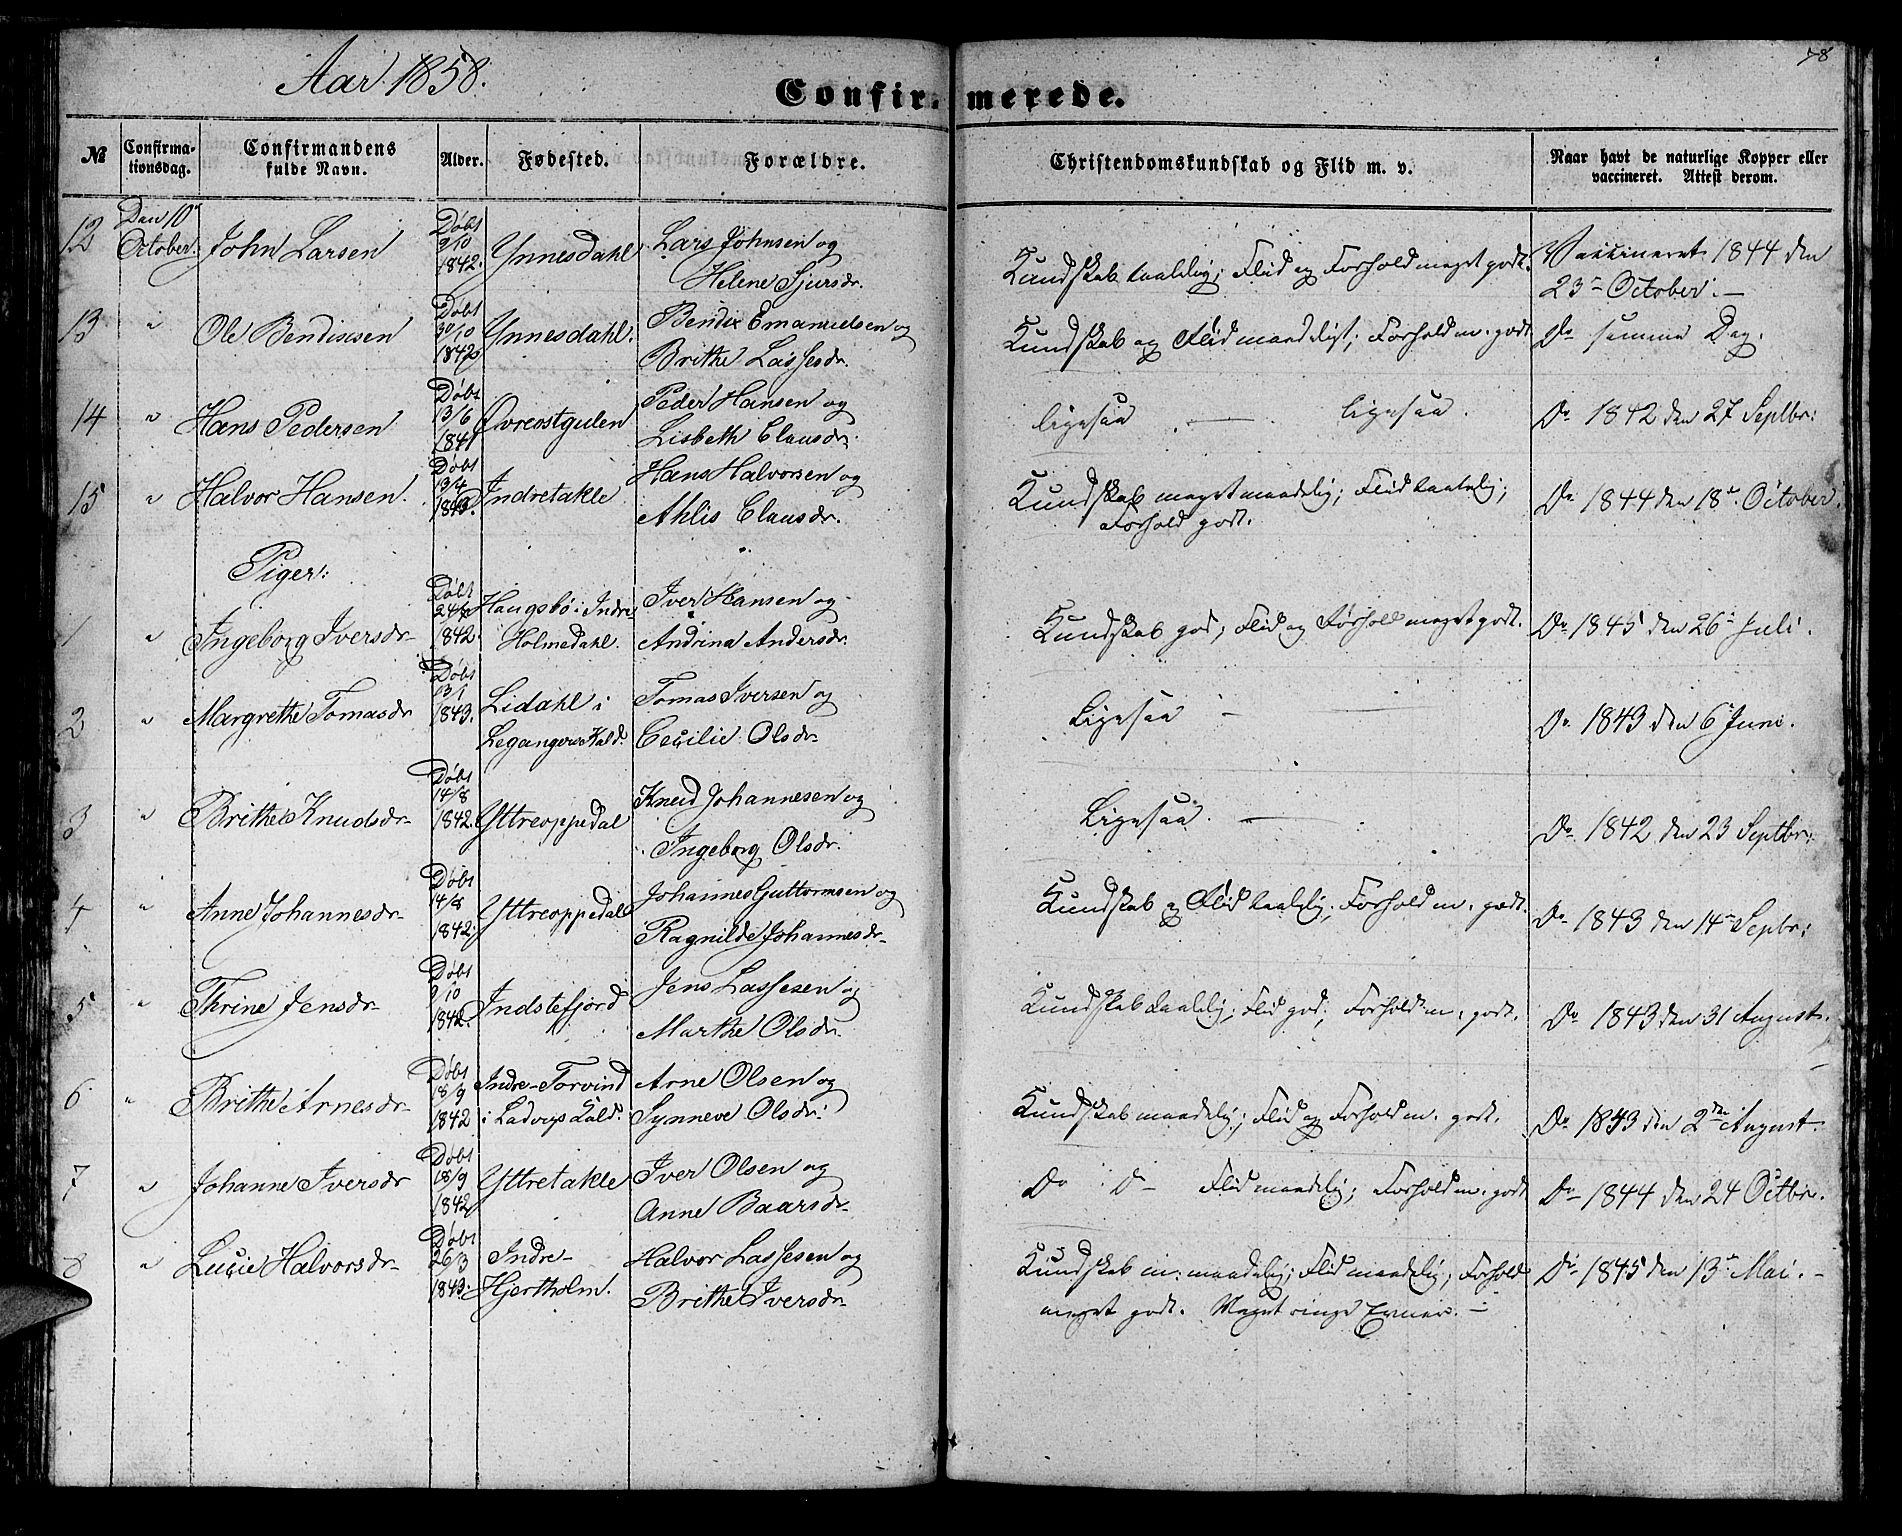 78
Aar 1858.
Confirmerede.
№ Confirmationsdag. Confirmandens fulde Navn. Alder. Fødested. Forældre. Christendomskundskab og Flid m. v. Naar havt de naturlige Kopper eller vaccineret. Attest derom.
12 Den 10de October. John Larsen Døbt 9/10 1842. Ynnesdahl Lars Johnsen og Helene Sjursdr. Kundskab taalelig; Flid og Forhold meget godt. Vaccineret 1844 den 23de October. —
13 " Ole Bendixsen Døbt 30/10 1842 Ynnesdahl. Bendix Emanuelsen og Brithe Lassesdr. Kundskab og Flid maadeligt; Forhold m. godt Do samme Dag.
14 " Hans Pedersen Døbt 13/6 1841 Øvreostgulen Peder Hansen og Lisbeth Clausdr. ligesaa — ligesaa. Do 1842 den 27 Septbr:
15 " Halvor Hansen. Døbt 13/4 Indretakle Hans Halvorsen og Ahlis Clausdr. Kundskab meget maadelig; Flid taalelig; Forhold godt. Do 1844 den 18de October.
Piger:
1 " Ingeborg Iversdr Døbt 1842. Haugsbø i Indre Holmedahl. Iver Hansen og Andrina Andersdr. Kundskab god, Flid og Forhold meget godt. Do 1845 den 26de Juli.
2 " Margrethe Tomasdr Døbt 13/1 1843. Lidahl i Leganger Kald. Tomas Iversen og Cecilie Olsdr Ligesaa — Do 1843 den 6te Juni.
3 " Brithe Knudsdr Døbt 14/8 1842. Yttreoppedal Knud Johannesen og Ingeborg Olsdr. Ligesaa. — Do 1842 den 23 Septbr:
4 " Anne Johannesdr Døbt 14/8 1842. Yttreoppedal Johannes Guttormsen og Ragnilde Johannesdr Kundskab og Flid taalelig; Forhold m. godt. Do 1843 den 14de Septbr:
5 " Thrine Jensdr Døbt 9/10 1842. Indstefjord Jens Lassesen og Marthe Olsdr Kundskab taalelig; Flid god; Forhold m. godt. Do 1843 den 31 August.
6 " Brithe Arnesdr Døbt 18/9 1842 Indre-Torvind i Ladvigs Kald. Arne Olsen og Synneve Olsdr: Kundskab maadelig; Flid og Forhold m. godt. Do 1843 den 2den August.
7 " Johanne Iversdr Døbt 18/9 1842 Yttretakle Iver Olsen og Anne Baarsdr Do Do Flid maadelig; Forhold m. godt Do 1844 den 24 Octbr.
8 " Lucie Halvorsdr Døbt 26/3 1843. Indre-Hjertholm. Halvor Lassesen og Brithe Iversdr Kundskab m: maadelig; Flid maadelig; Forhold meget godt. Meget ringe Evner. — Do 1845 den 13de Mai. —